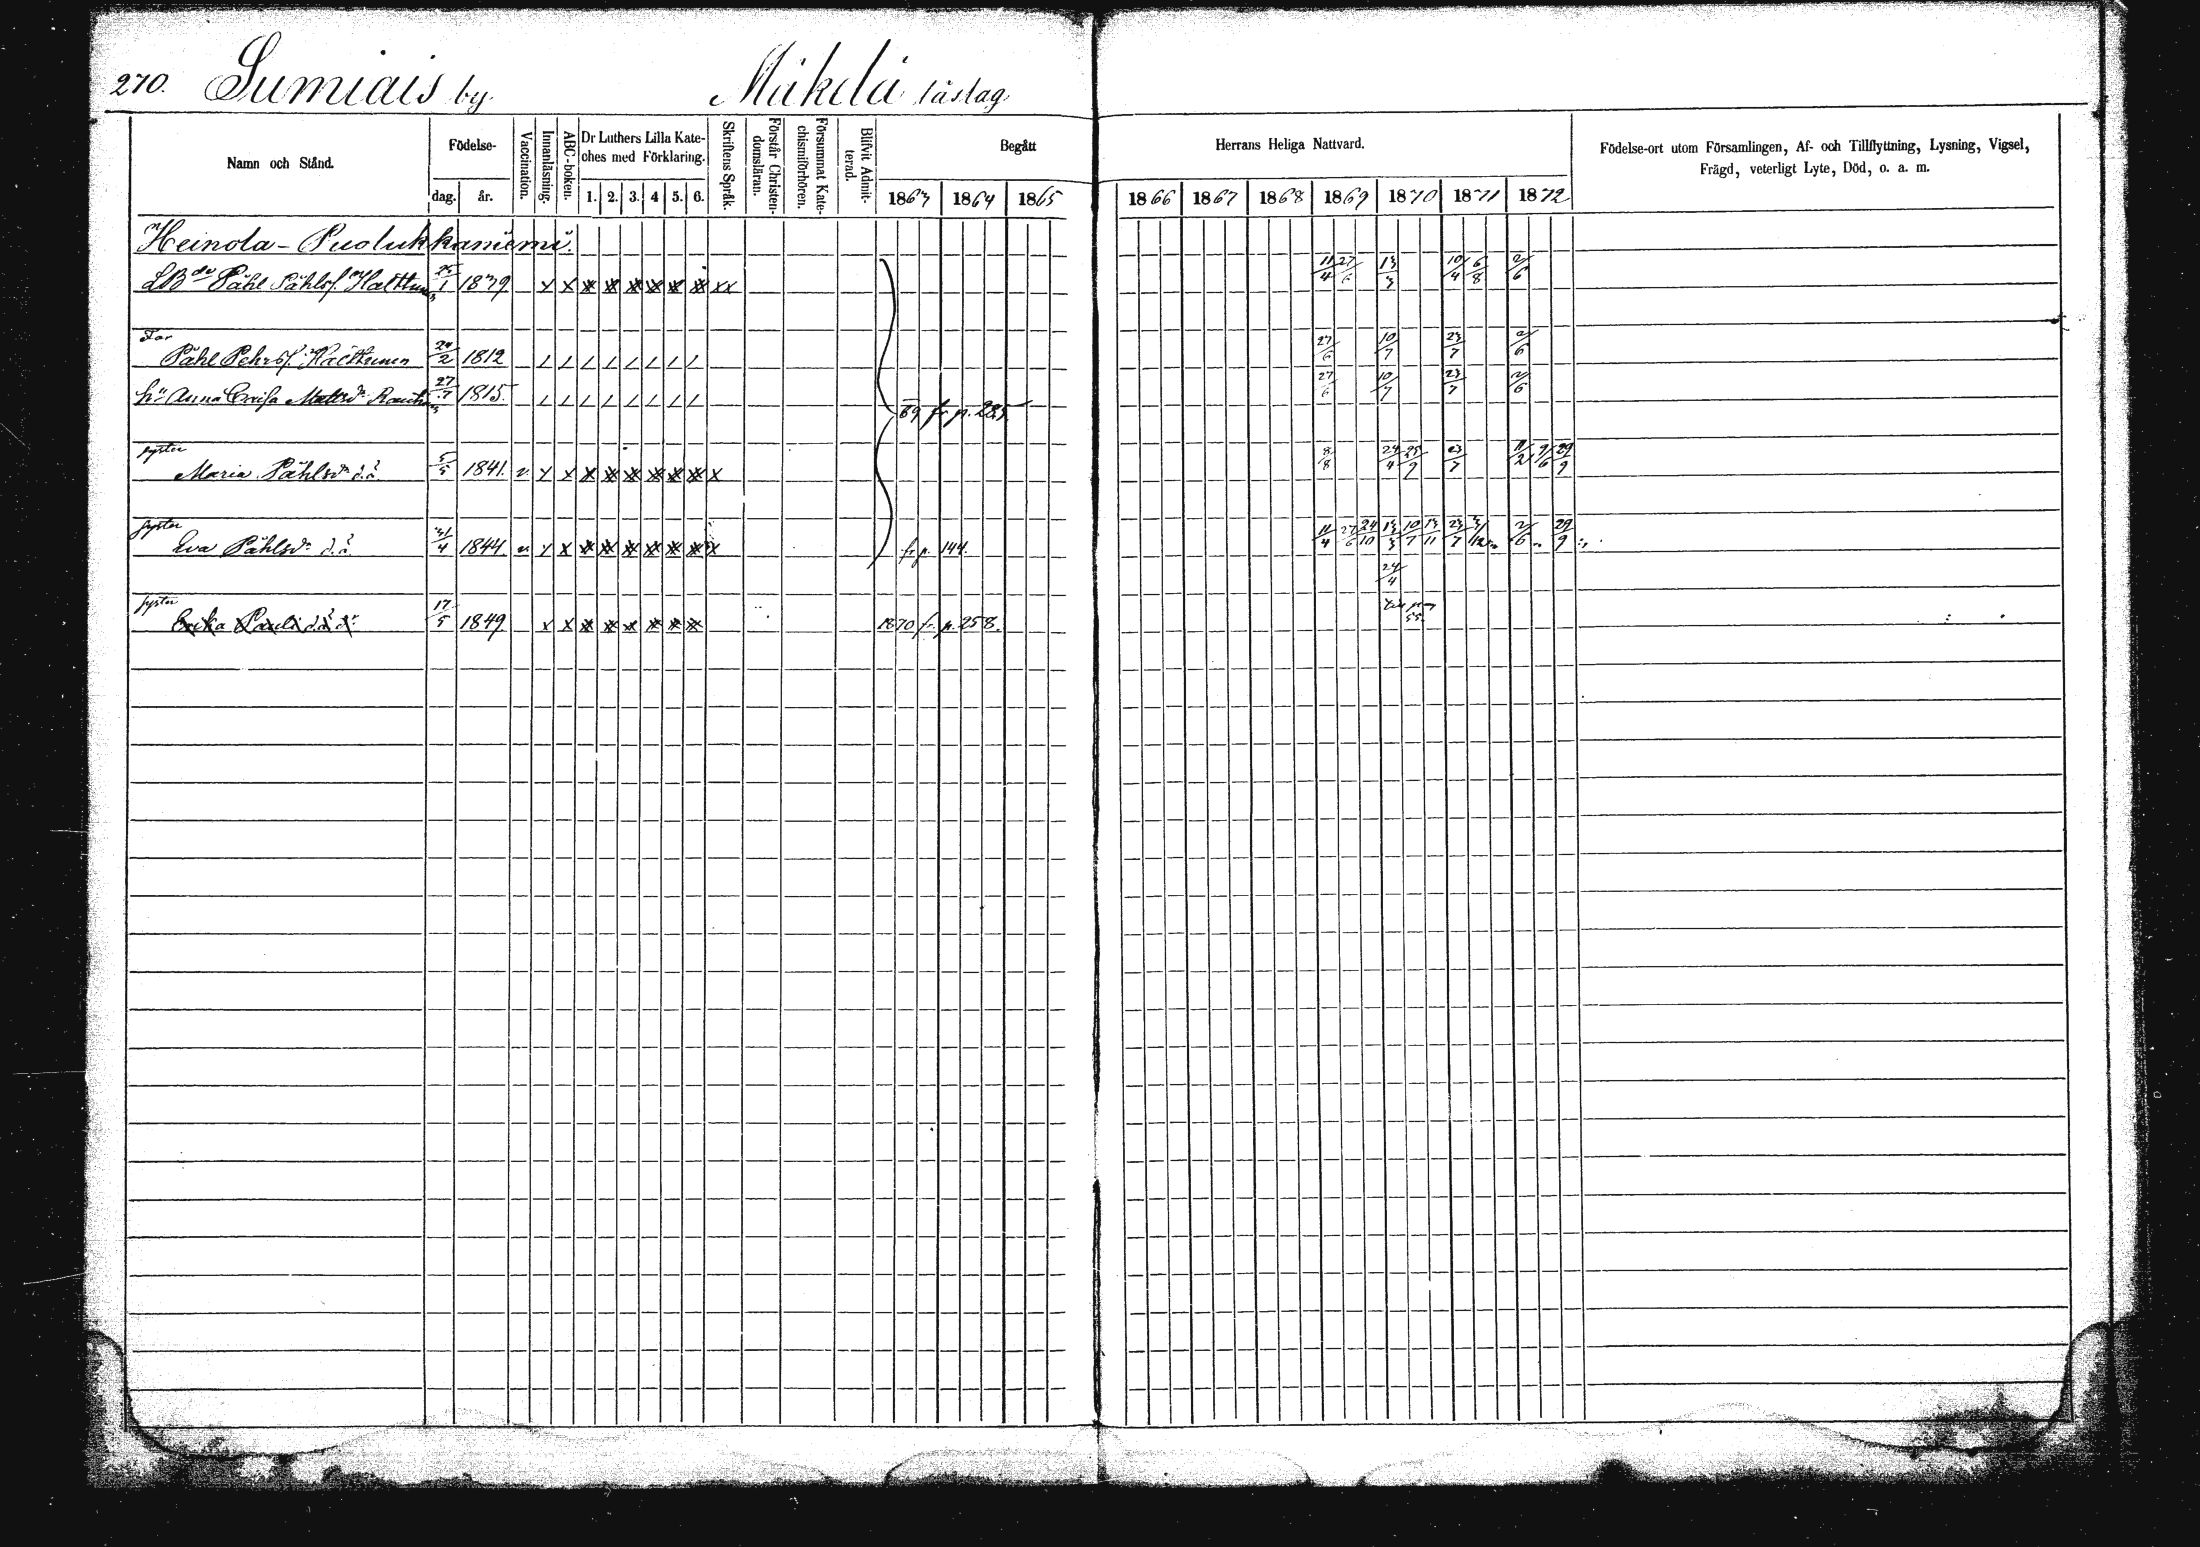 270. Sumiais by. Mäkelä läslag
Namn och Stånd.
Födelse-
dag. år.
Vaccination.
Innanläsning.
ABC-boken.
Dr Luthers Lilla Kate-
ches med Förklaring.
1. 2. 3. 4 5. 6.
Skriftens Språk.
Förstår Christen-
domsläran.
Försummat Kate-
chismiförhören.
Blifvit Admit-
terad.
Begått Herrans Heliga Nattvard.
1863 1864 1865 1866 1867 1868 1869 1870 1871 1872
Födelse-ort utom Församlingen, Af- och Tillflyttning, Lysning, Vigsel,
Frägd, veterligt Lyte, Död, o. a. m.
Heinola-Puolukkaniemi.
Påhl Påhls 25/1 1839 x x xx 11/4 27/6 13/3 10/4 6/8 2/6
Far
Påhl Pehrs 24/2 1812 27/6 10/7 23/7 2/6
hu Anna Caisa Mattsdr 27/7 1815. 27/6 10/7 23/7 2/6
69 fr p. 285
syster
Maria Påhlsdr d.ä. 5/5 1841. v. x x x 8/8 24/4 25/9 23/7 11/2 9/6 29/9
syster
Eva Påhlsdr d.ä. 31/4 1844. v. x x x fr p. 144. 11/4 27/6 24/10 13/3 10/7 13/11 23/7 2/6 29/9
24/4
syster
Erika 17/5 1849 x x 1870 fr. p. 258. till pag
55.